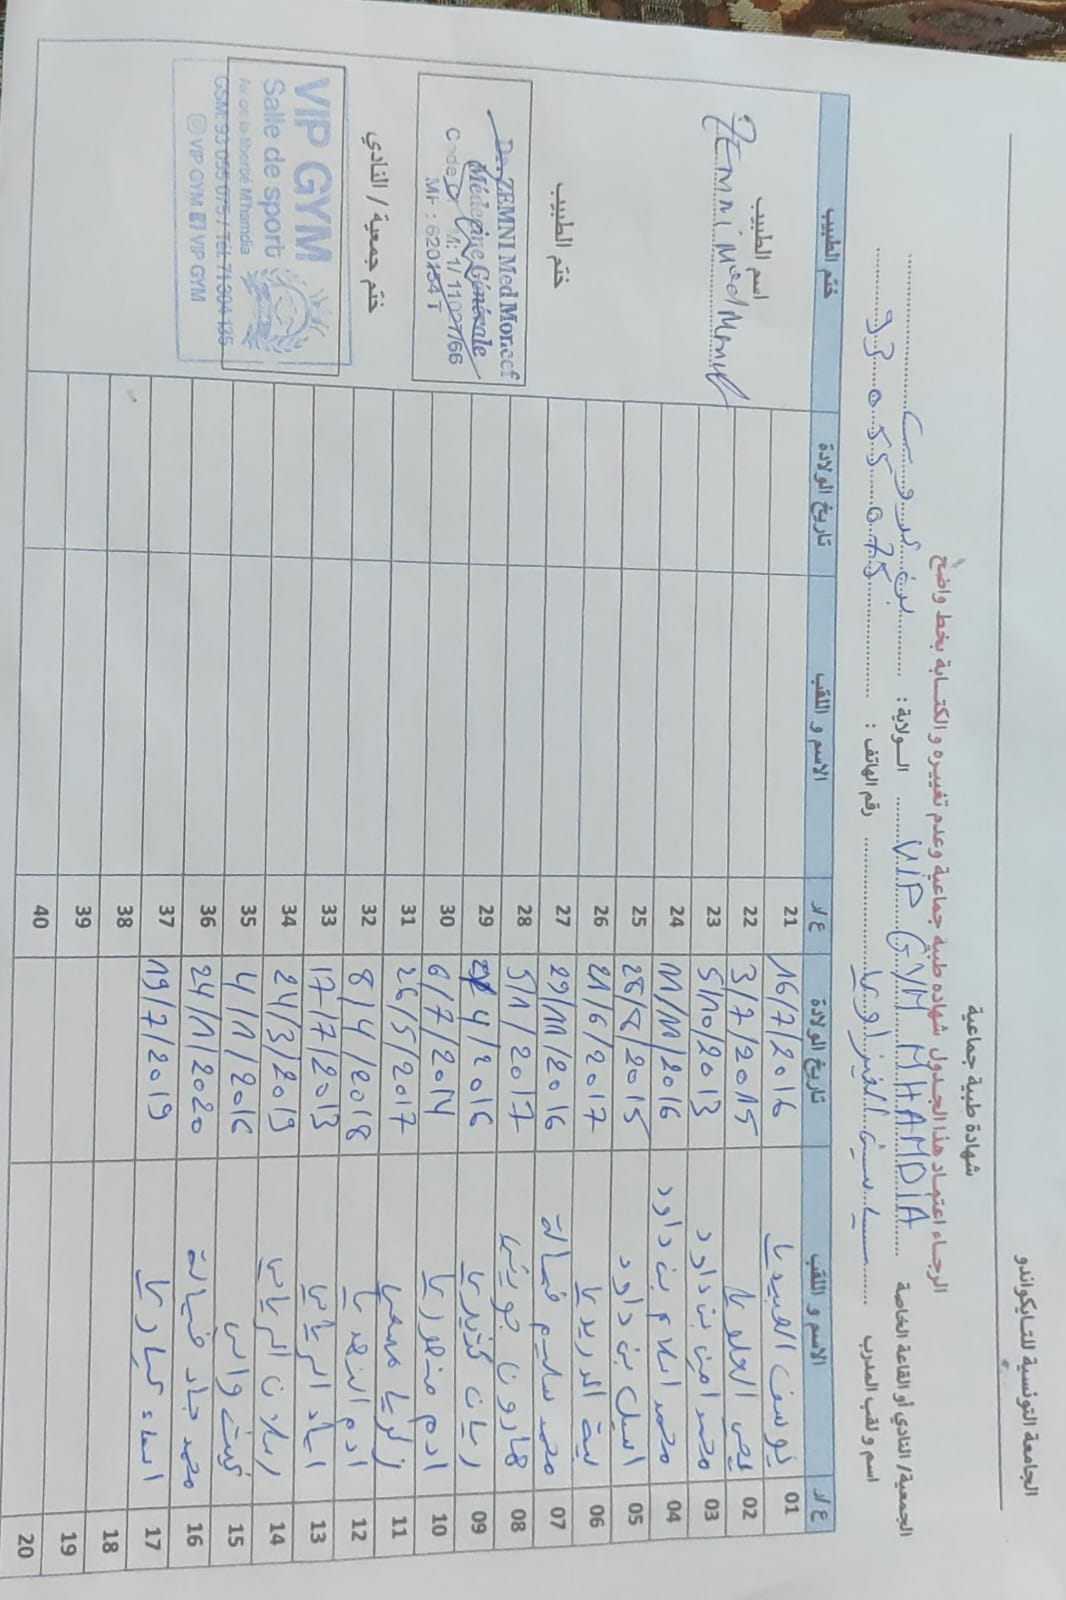 الجامعة التونسية للتايكواندو
شهادة طبية جماعية
الرجاء اعتماد هذا الجدول شهادة طبية جماعية وعدم تغييره و الكتابة بخط واضح
الجمعية/ النادي أو القاعة الخاصة ViP GYM MHAMDIA الولاية : بن عروس
اسم و لقب المدرب رقم الهاتف : 93 055 075
ع/ر الاسم و اللقب تاريخ الولادة ع/ر الاسم و اللقب تاريخ الولادة ختم الطبيب
01 يوسف العبيدي 16/7/2016 21
02 العلوي 3/7/2015 22
03 محمد امين بن داود 5/10/2013 23
04 محمد اسلام بن داود 11/11/2016 24
05 اسيل بن داود 28/8/2015 25
06 بية الدريدي 21/6/2017 26
07 محمد سليم 29/11/2016 27
08 هارون جويني 5/1/2017 28
09 ريان 4/2016 29
10 ادم منصوري 6/7/2014 30
11 زكريا 26/5/2017 31
12 ادم 8/4/2018 32
13 اياد الرياحي 17/7/2013 33
14 رسلان الرياحي 24/3/2019 34
15 غيث 4/1/2016 35
16 محمد جاد 24/1/2020 36
17 اسماء 19/7/2019 37
18 38
19 39
20 40
اسم الطبيب
ZEMNi Med Moncef
ختم الطبيب
Dr. ZEMNI Med Moncef
Médecine Générale
ختم جمعية / النادي
VIP GYM
Salle de sport
Av de la liberté M'hamdia
GSM: 93 055 075 / Tél: 71 304 135
VIP GYM VIP GYM